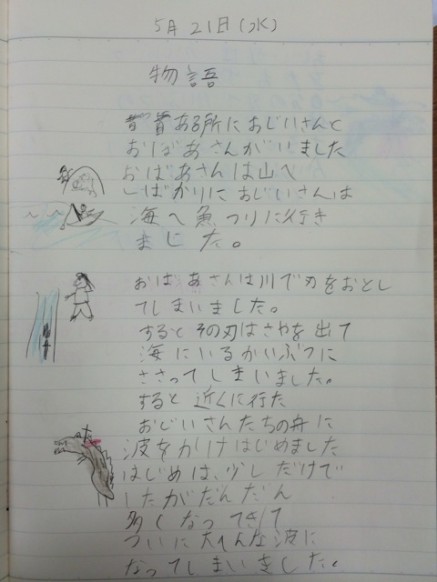 5月21日(水)
物語
昔ある所におじいさんと
おばあさんがいました
おばあさんは山へ
しばかりにおじいさんは
海へ魚つりに行き
ました。
おばあさんは川で刃をおとし
てしまいました。
するとその刃はさやを出て
海にいるかいぶつに
ささってしまいました。
すると近くに行た
おじいさんたちの舟に
波をかけはじめました
はじめは、少しだけで
したがだんだん
多くなってきて
ついに大へんな波に
なってしまいました。